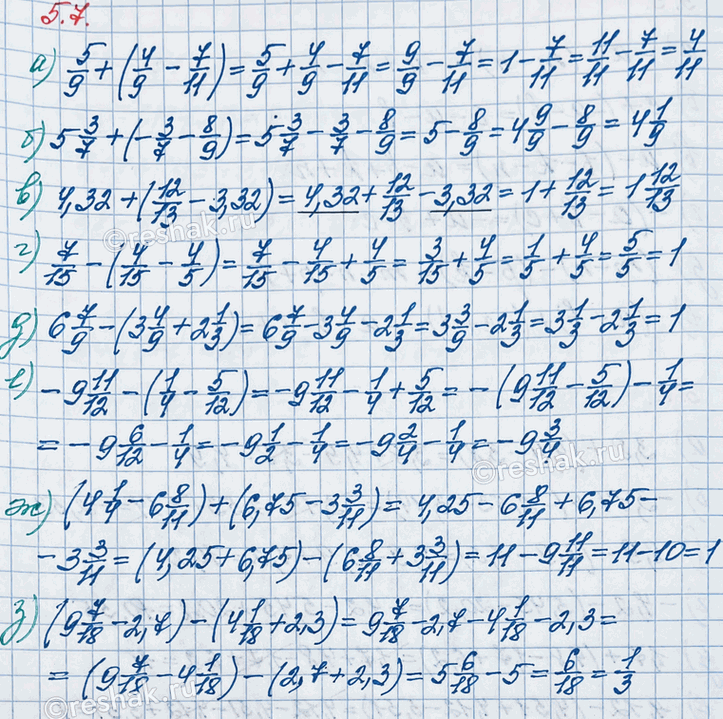 5.7.
а) 5/9 + (4/9 - 7/11) = 5/9 + 4/9 - 7/11 = 9/9 - 7/11 = 1 - 7/11 = 11/11 - 7/11 = 4/11
б) 5 3/7 + (-3/7 - 8/9) = 5 3/7 - 3/7 - 8/9 = 5 - 8/9 = 4 9/9 - 8/9 = 4 1/9
в) 4,32 + (12/13 - 3,32) = 4,32 + 12/13 - 3,32 = 1 + 12/13 = 1 12/13
г) 7/15 - (4/15 - 4/5) = 7/15 - 4/15 + 4/5 = 3/15 + 4/5 = 1/5 + 4/5 = 5/5 = 1
д) 6 7/9 - (3 4/9 + 2 1/3) = 6 7/9 - 3 4/9 - 2 1/3 = 3 3/9 - 2 1/3 = 3 1/3 - 2 1/3 = 1
е) -9 11/12 - (1/4 - 5/12) = -9 11/12 - 1/4 + 5/12 = -(9 11/12 - 5/12) - 1/4 =
= -9 6/12 - 1/4 = -9 1/2 - 1/4 = -9 2/4 - 1/4 = -9 3/4
ж) (4 1/4 - 6 8/11) + (6,75 - 3 3/11) = 4,25 - 6 8/11 + 6,75 -
- 3 3/11 = (4,25 + 6,75) - (6 8/11 + 3 3/11) = 11 - 9 11/11 = 11 - 10 = 1
з) (9 7/18 - 2,7) - (4 1/18 + 2,3) = 9 7/18 - 2,7 - 4 1/18 - 2,3 =
= (9 7/18 - 4 1/18) - (2,7 + 2,3) = 5 6/18 - 5 = 6/18 = 1/3
©reshak.ru
©reshak.ru
©reshak.ru
©reshak.ru